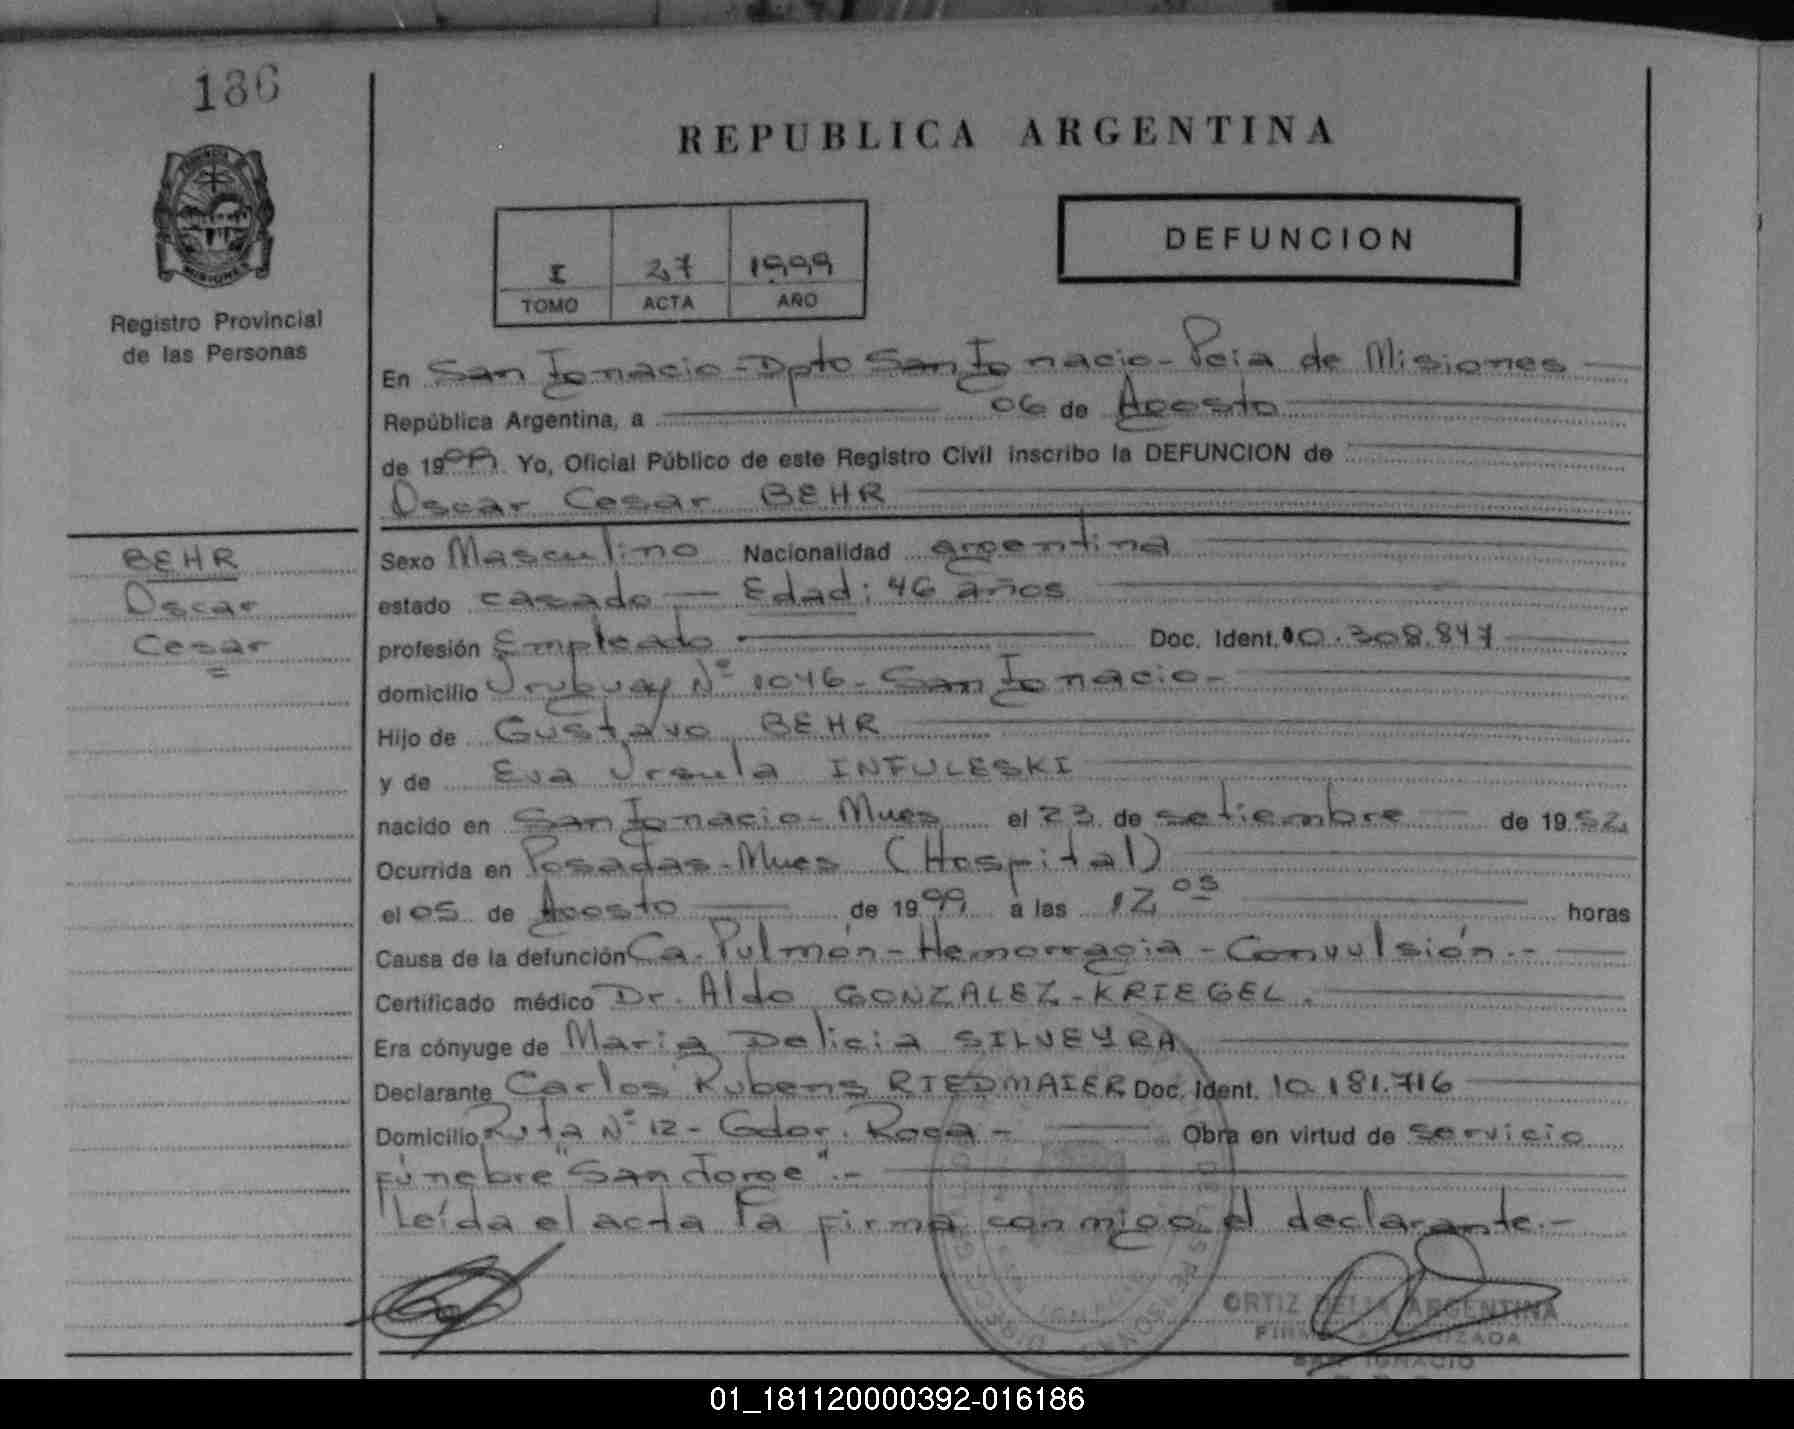 186
REPUBLICA ARGENTINA
DEFUNCION
I 27 1999
TOMO ACTA AÑO
Registro Provincial
de las Personas
En San Ignacio - Dpto San Ignacio - Pcia de Misiones
República Argentina, a 06 de Agosto
de 1999 Yo, Oficial Público de este Registro Civil inscribo la DEFUNCION de
Oscar Cesar BEHR
BEHR
Oscar
Cesar
Sexo Masculino Nacionalidad argentina
estado casado - Edad: 46 años
profesión Empleado Doc. Ident. 10.308.847
domicilio Uruguay Nº 1046 - San Ignacio -
Hijo de Gustavo BEHR
y de Eva Ursula INFULESKI
nacido en San Ignacio - Mnes el 23 de setiembre de 1952
Ocurrida en Posadas - Mnes (Hospital)
el 05 de Agosto de 1999 a las 12 05 horas
Causa de la defunción Ca. Pulmón - Hemorragia - Convulsión.-
Certificado médico Dr. Aldo GONZALEZ - KRIEGEL.
Era cónyuge de Maria Delicia SILVEYRA
Declarante Carlos Rubens RIEDMAIER Doc. Ident. 10.181.716
Domicilio Ruta Nº 12 - Gdor. Roca - Obra en virtud de servicio
fúnebre "San Jorge".-
Leída el acta la firma conmigo el declarante.-
ORTIZ DELIA ARGENTINA
FIRMA AUTORIZADA
SAN IGNACIO
01_181120000392-016186